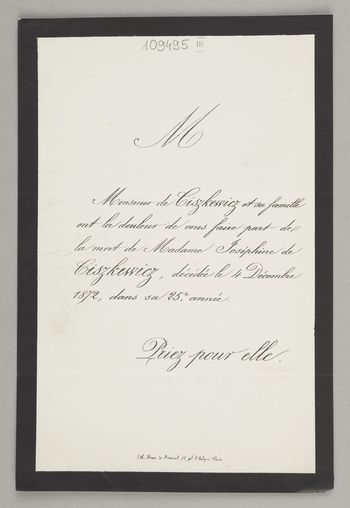 109495 III
M
Monsieur de Ciszkewicz et sa famille
ont la douleur de vous faire part de
la mort de Madame Joséphine de
Ciszkewicz, décédée le 4 Décembre
1872, dans sa 25e année.
Priez pour elle.
Paris